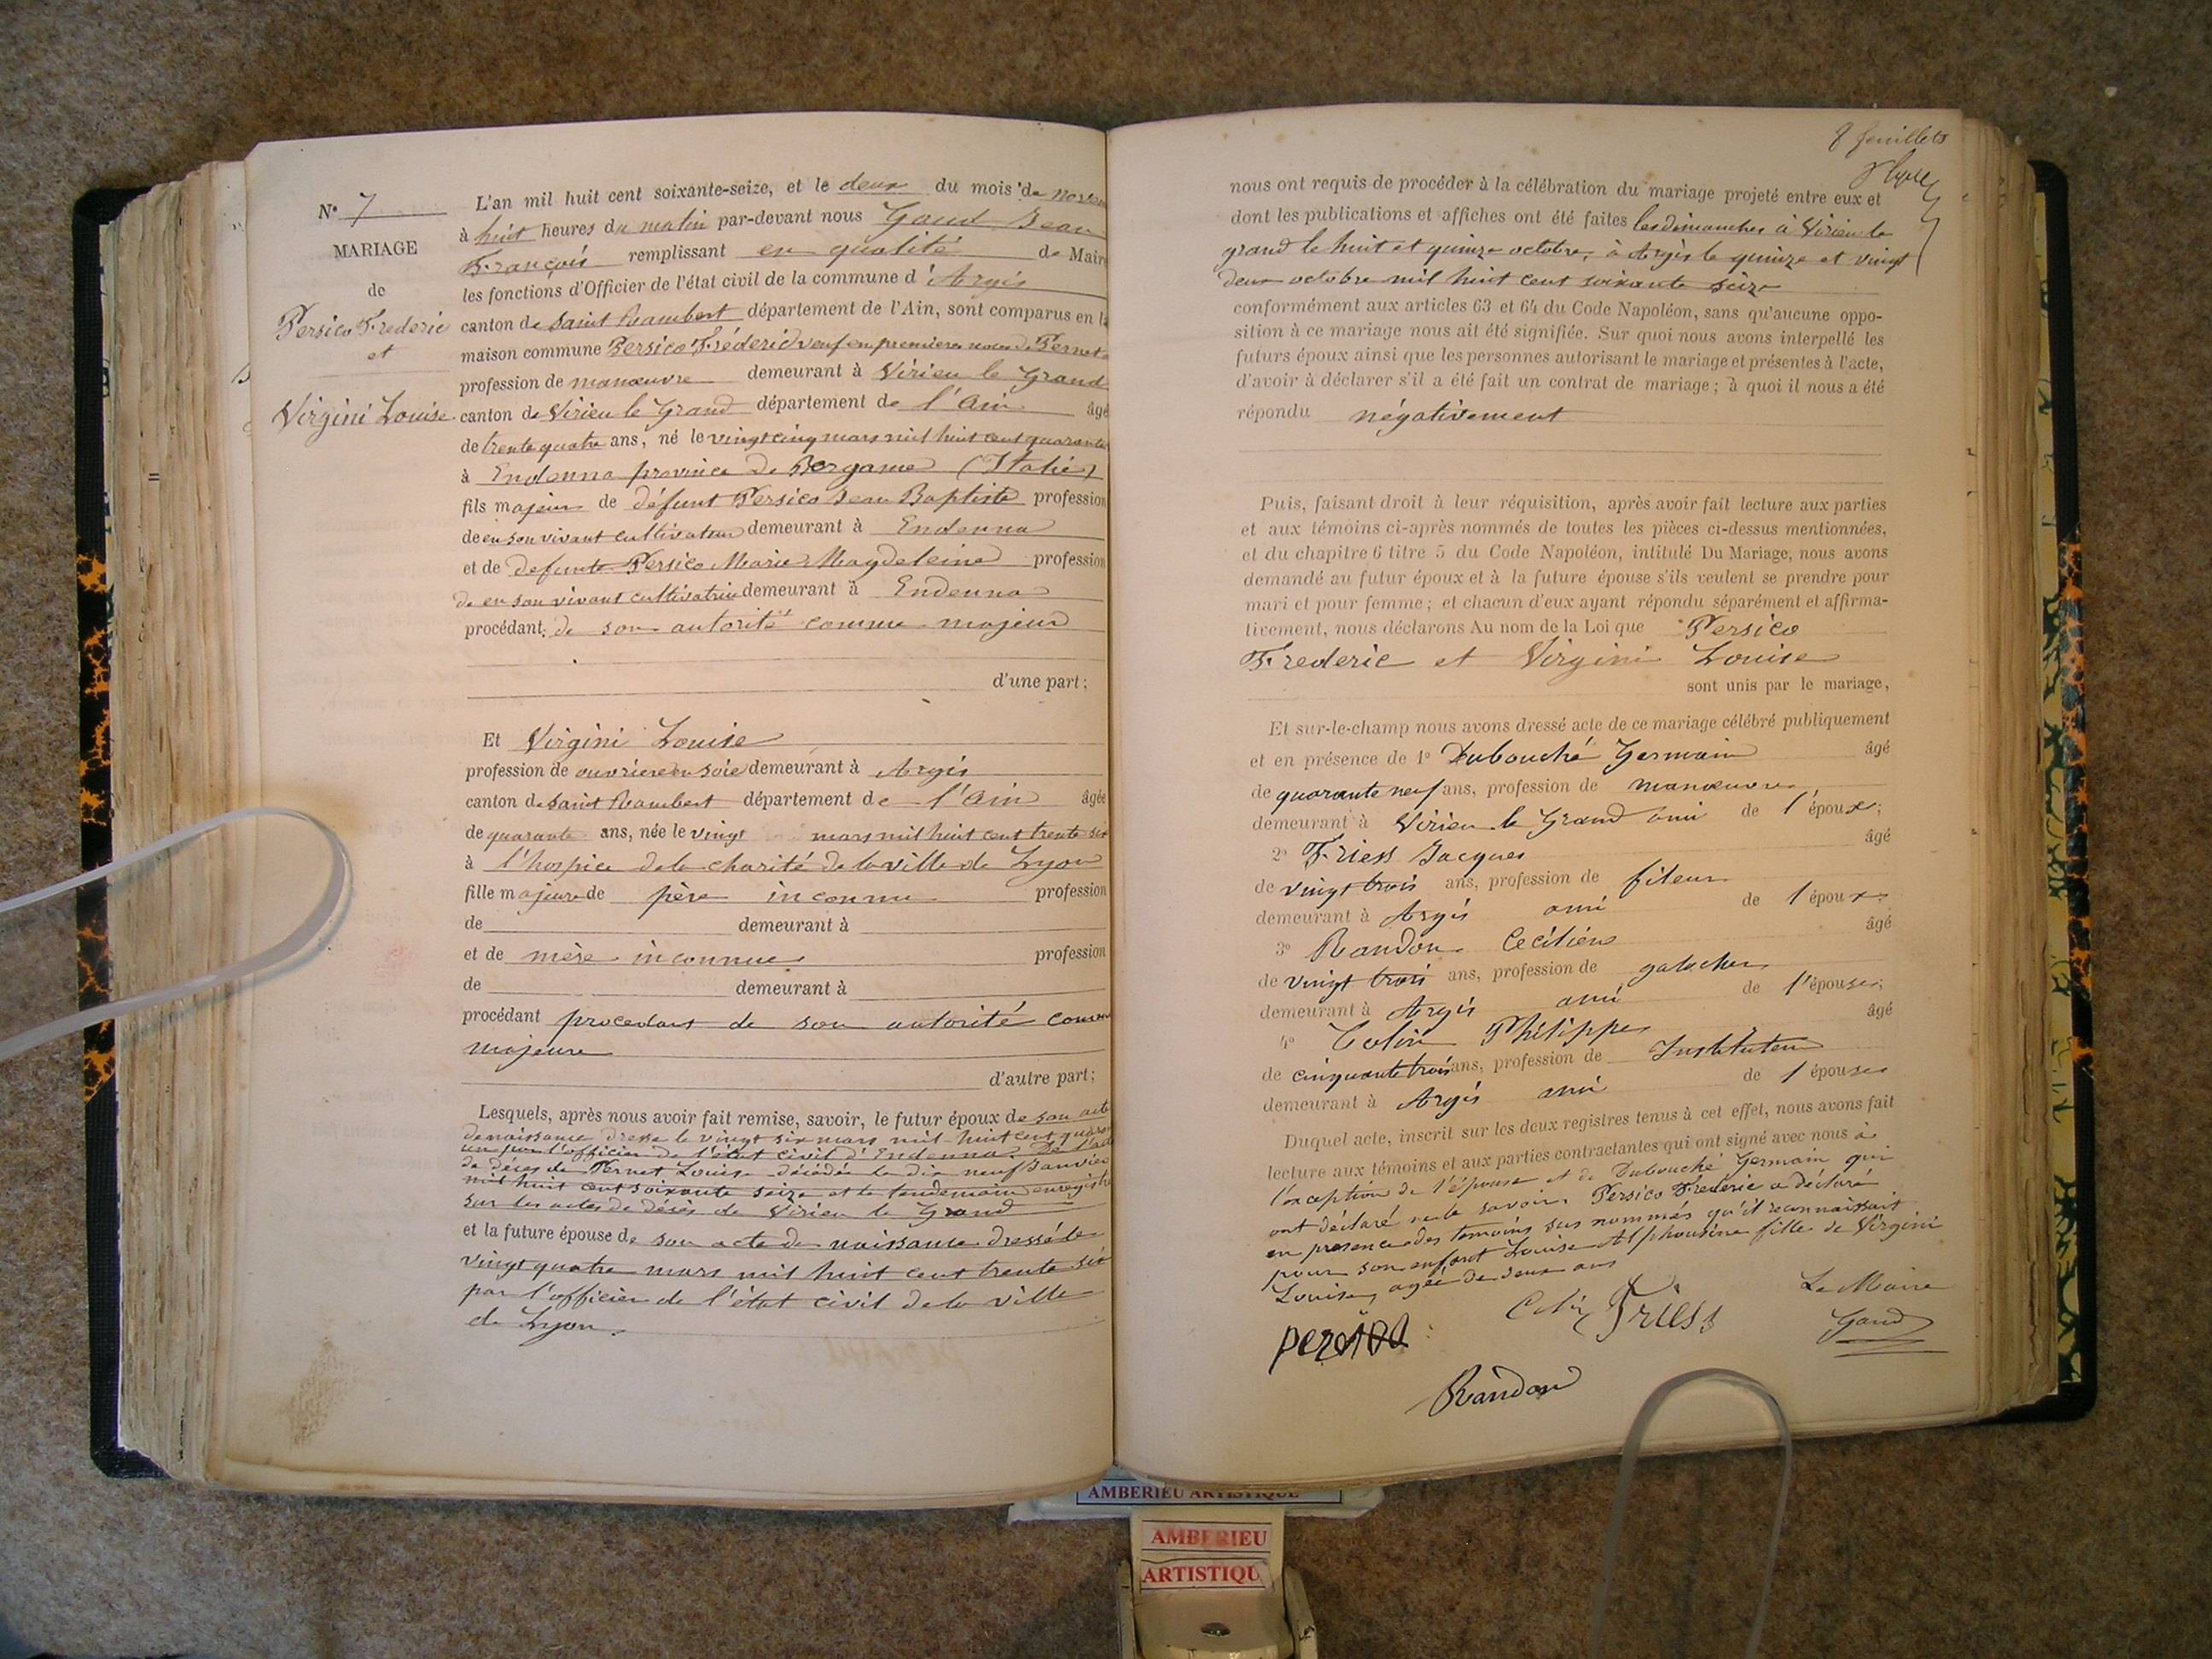 N° 7
MARIAGE
de
Persico Frederic
et
Virgini Louise
L'an mil huit cent soixante-seize, et le deux du mois de novem
à huit heures du matin par-devant nous Gaud Jean
François remplissant en qualité de Maire
les fonctions d'Officier de l'état civil de la commune d'Argis
canton de Saint Rambert département de l'Ain, sont comparus en la
maison commune Persico Fréderic veuf en premieres noces de Pernet
profession de manœuvre demeurant à Virieu le Grand
canton de Virieu le Grand département de l'Ain âgé
de trente quatre ans, né le vingt cinq mars mil huit cent quarante
à Endenna province de Bergame (Italie)
fils majeur de défunt Persico Jean Baptiste profession
de en son vivant cultivateur demeurant à Endenna
et de defunte Persico Marie Magdeleine profession
de en son vivant cultivatrice demeurant à Endenna
procédant de son autorité comme majeur
d'une part;
Et Virgini Louise
profession de ouvriere en soie demeurant à Argis
canton de Saint Rambert département de l'Ain âgée
de quarante ans, née le vingt mars mil huit cent trente six
à l'hospice de la charité de la ville de Lyon
fille majeure de père inconnu profession
de demeurant à
et de mère inconnue profession
de demeurant à
procédant procedant de son autorité comme
majeure
d'autre part;
Lesquels, après nous avoir fait remise, savoir, le futur époux de son acte
de naissance dressé le vingt six mars mil huit cent quaran
un par l'officier de l'état civil d'Endenna. De l'acte
de décès de Pernet Louise décédée le dix neuf Janvier
mil huit cent soixante seize et le lendemain enregistré
sur les actes de décès de Virieu le Grand
et la future épouse de son acte de naissance dressé le
vingt quatre mars mil huit cent trente six
par l'officier de l'état civil de la ville
de Lyon.
8 feuillets
nous ont requis de procéder à la célébration du mariage projeté entre eux et
dont les publications et affiches ont été faites les dimanches à Virieu le
grand le huit et quinze octobre, à Argis le quinze et vingt
deux octobre mil huit cent soixante seize
conformément aux articles 63 et 64 du Code Napoléon, sans qu'aucune oppo-
sition à ce mariage nous ait été signifiée. Sur quoi nous avons interpellé les
futurs époux ainsi que les personnes autorisant le mariage et présentes à l'acte,
d'avoir à déclarer s'il a été fait un contrat de mariage; à quoi il nous a été
répondu négativement
Puis, faisant droit à leur réquisition, après avoir fait lecture aux parties
et aux témoins ci-après nommés de toutes les pièces ci-dessus mentionnées,
et du chapitre 6 titre 5 du Code Napoléon, intitulé Du Mariage, nous avons
demandé au futur époux et à la future épouse s'ils veulent se prendre pour
mari et pour femme; et chacun d'eux ayant répondu séparément et affirma-
tivement, nous déclarons Au nom de la Loi que Persico
Frederic et Virgini Louise
sont unis par le mariage,
Et sur-le-champ nous avons dressé acte de ce mariage célébré publiquement
et en présence de 1° Dubouché Germain âgé
de quarante neuf ans, profession de manœuvre
demeurant à Virieu le Grand ami de l'époux;
2° Friess Jacques âgé
de vingt trois ans, profession de fileur
demeurant à Argis ami de l'époux;
3° Randon Cecilien âgé
de vingt trois ans, profession de galocher
demeurant à Argis ami de l'épouse;
4° Colin Philippe âgé
de cinquante trois ans, profession de Instituteur
demeurant à Argis ami de l'épouse
Duquel acte, inscrit sur les deux registres tenus à cet effet, nous avons fait
lecture aux témoins et aux parties contractantes qui ont signé avec nous à
l'exception de l'épouse et de Dubouché Germain qui
ont déclaré ne le savoir. Persico Frederic a déclaré
en presence des temoins sus nommés qu'il reconnaissait
pour son enfant Louise Alphonsine fille de Virgini
Louise, agée de deux ans
Colin Friess Le Maire
Gaud
Randon
AMBERIEU ARTISTIQUE
AMBERIEU
ARTISTIQU